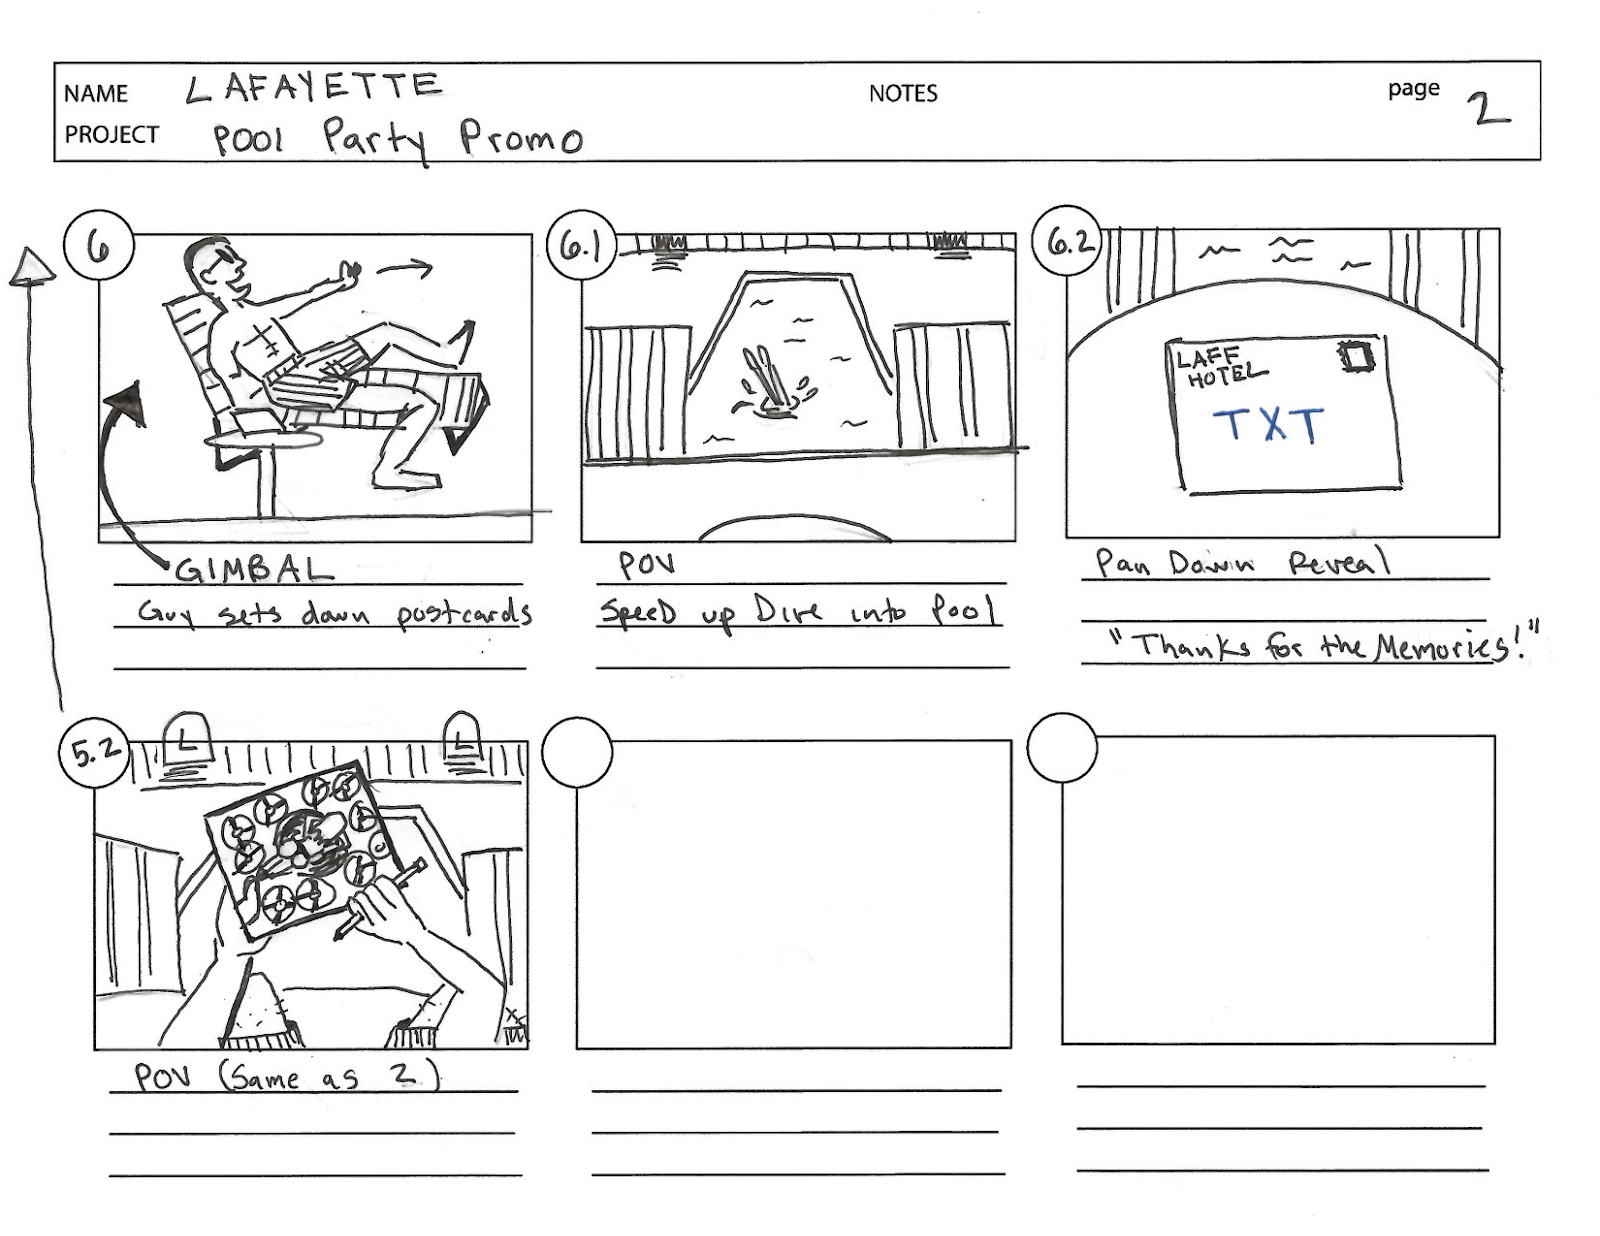 NAME LAFAYETTE NOTES page 2
PROJECT Pool Party Promo
6
GIMBAL
Guy sets down postcards
6.1
POV
Speed up Dive into Pool
6.2
LAFF
HOTEL
TXT
Pan Down Reveal
"Thanks for the Memories!"
5.2
L L
POV (Same as 2)